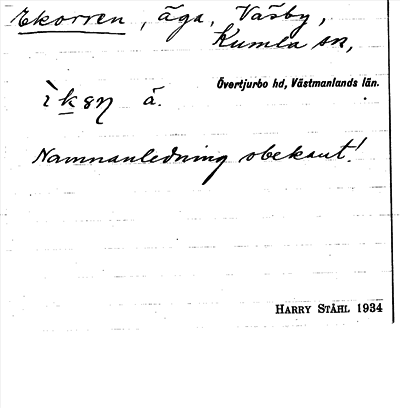 Ekorren, äga, Väsby,
Kumla sn,
Övertjurbo hd, Västmanlands län.
å.
Namnanledning obekant!
HARRY STÅHL 1934